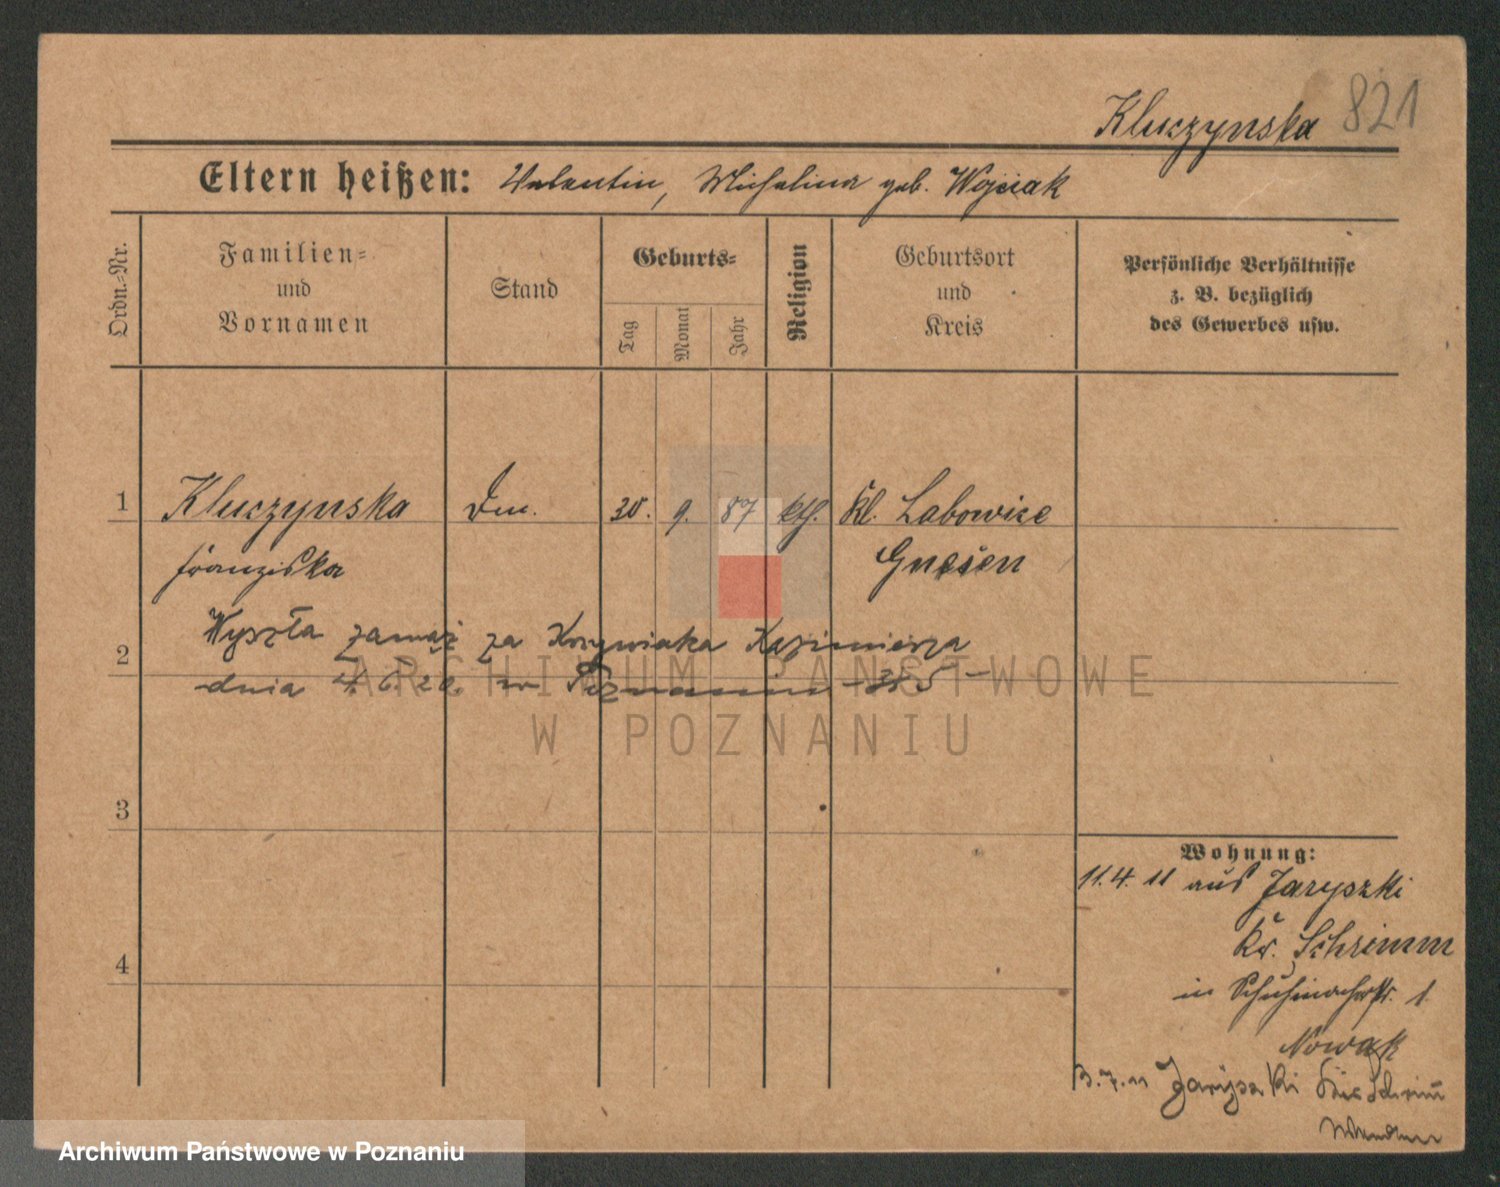 Kluczynska 821
Eltern heißen: Valentin, Michalina geb. Wojciak
Ordn.=Nr.
Familien=
und
Vornamen
Stand
Geburts=
Tag
Monat
Jahr
Religion
Geburtsort
und
Kreis
Persönliche Verhältnisse
z. B. bezüglich
des Gewerbes usw.
1 Kluczynska 30. 9. 87 kth. Kl. Labowice
Franziska Gnesen
Wyszła zamąż za Krzywiaka Kazimierza
2
dnia 4.6.20. w Poznaniu
3
Wohnung:
11.4.11 aus Jaryszki
Kr. Schrimm
4
in Schuhmacherstr. 1.
Nowak
3.7.11 Jaryszki
ARCHIWUM PAŃSTWOWE
W POZNANIU
Archiwum Państwowe w Poznaniu